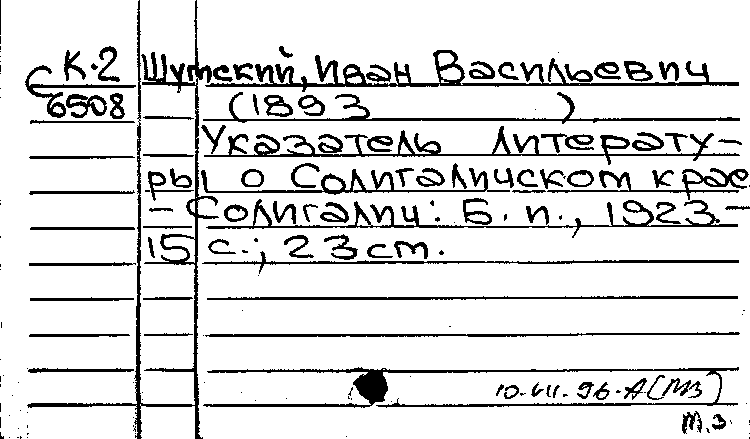 К-2 Шумский, Иван Васильевич
6508 (1893 )
Указатель литерату-
ры о Солигаличском крае
- Солигалич: Б. п., 1923.-
15 с.; 23 см.
10.VII.96.А(МЗ)
М.З.